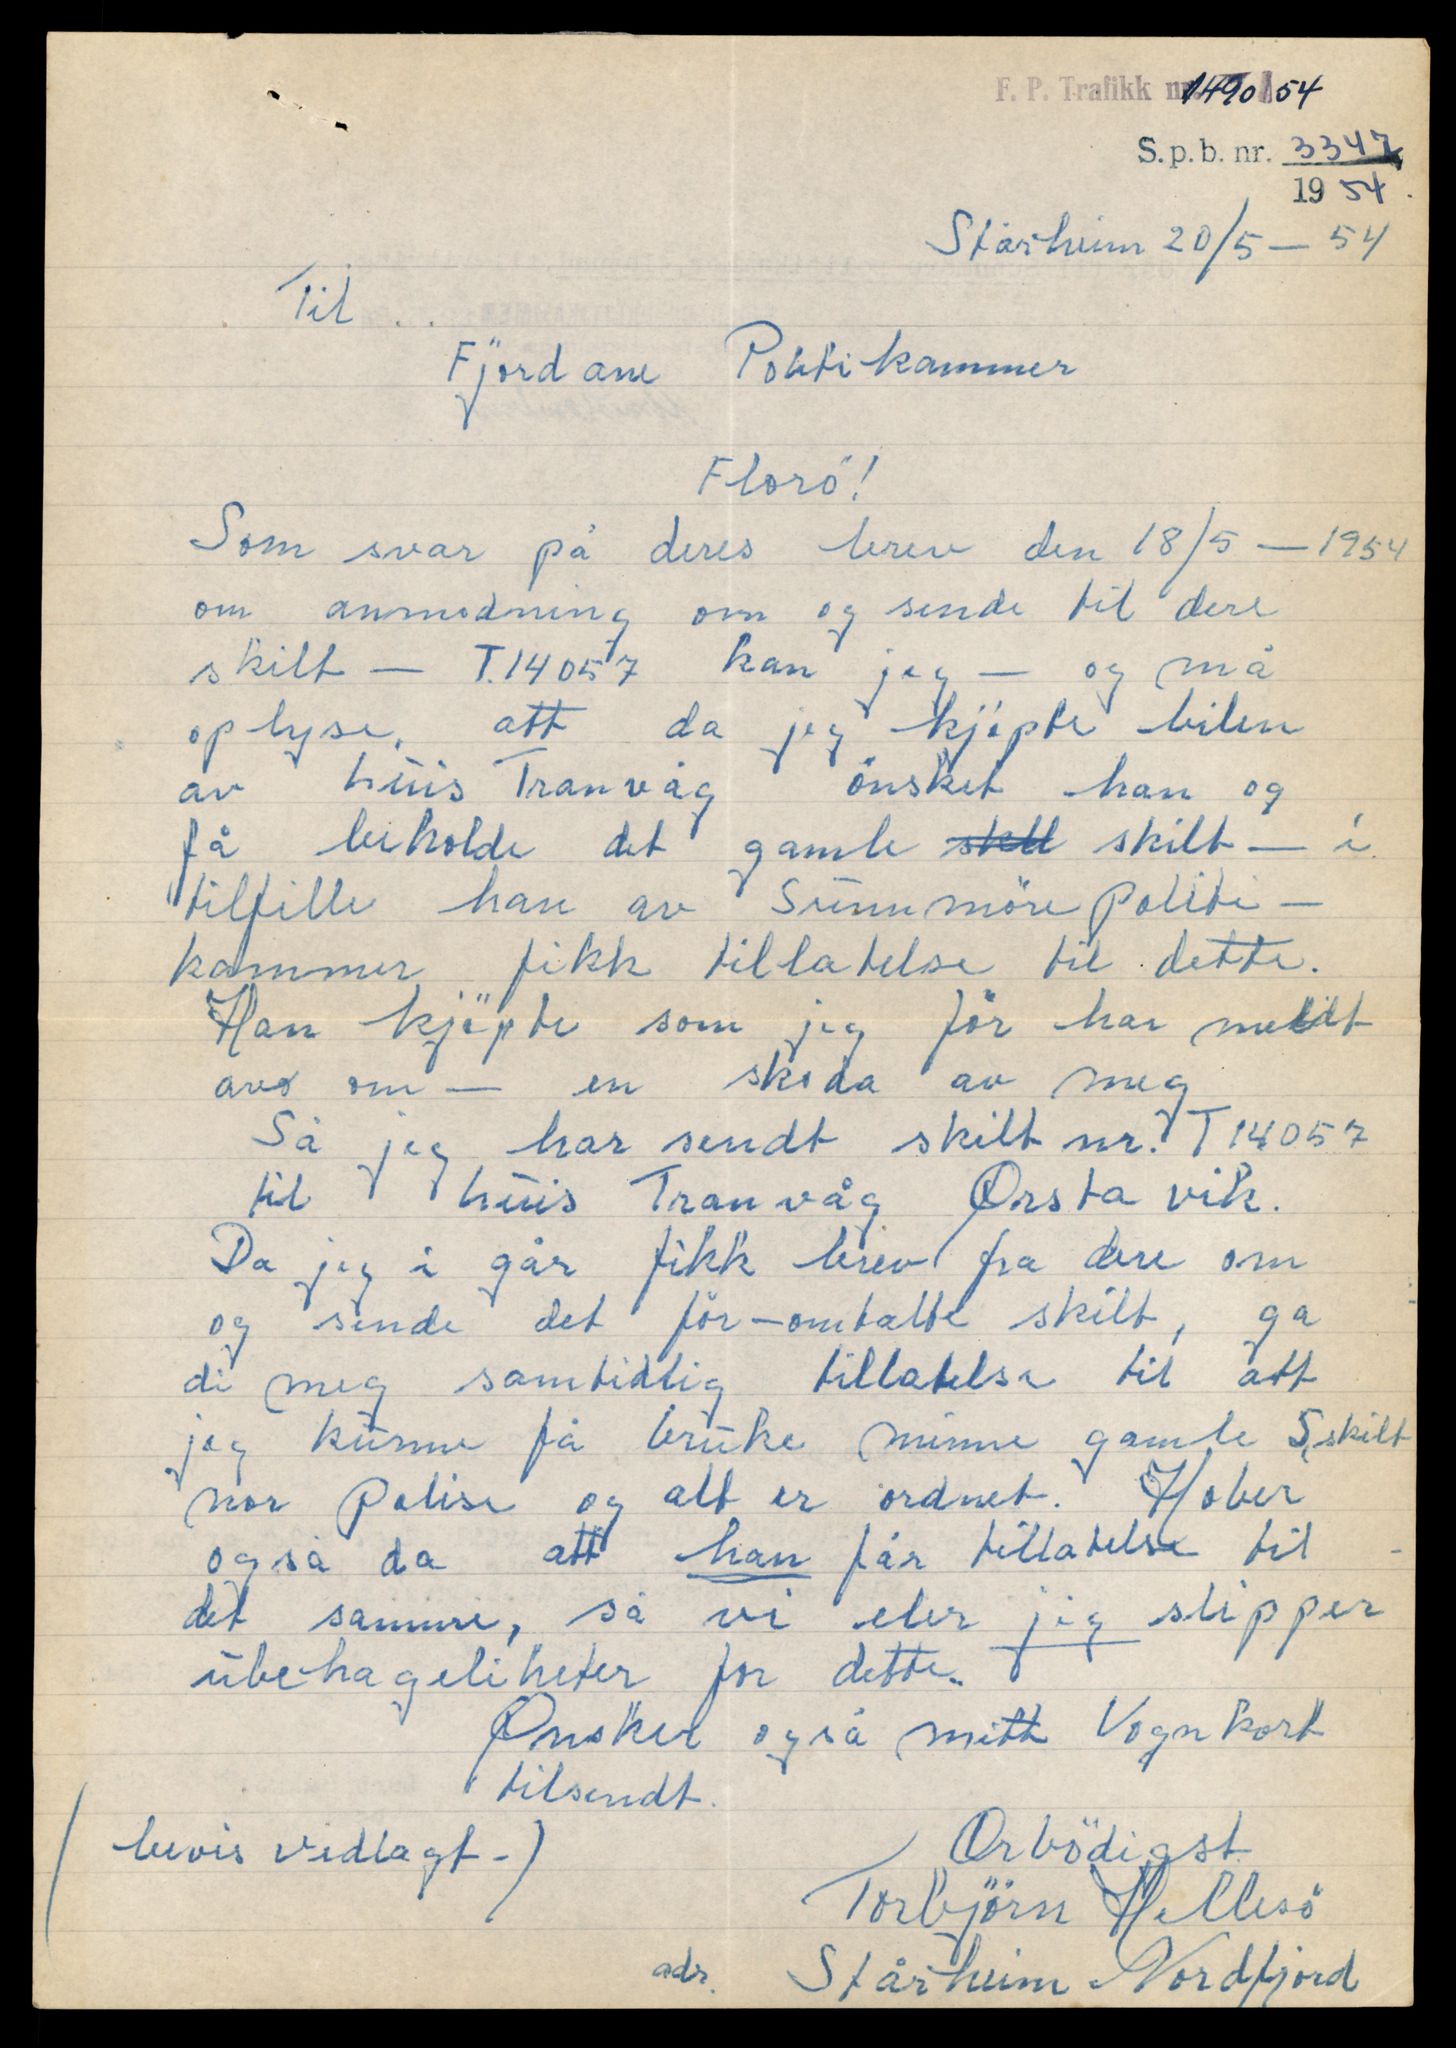 F. P. Trafikk nr. 1490/54
S.p.b. nr. 3347
1954.
Stårheim 20/5 — 54
Til ..
Fjordane Politikammer
Florö!
Som svar på deres brev den 18/5 — 1954
om anmodning om og sende til dere
skilt — T.14057 kan jeg — og må
oplyse, att da jeg kjöpte bilen
av Tranvåg önsket han og
få beholde det gamle skilt — i
tilfille han av Sunnmöre Politi-
kammer fikk tillatelse til dette.
Han kjöpte som jeg för har meldt
om — en skoda av meg
Så jeg har sendt skilt nr. T14057
til Tranvåg Ørsta vik.
Da jeg i går fikk brev fra dere om
og sende det för-omtalte skilt, ga
di meg samtidtig tillatelse til att
jeg kunne få bruke minne gamle S, skilt
nor Polise og alt er ordnet. Hober
også da att han får tillatelse til
det samme, så vi eler jeg slipper
ubehageliheter for dette.
Ønsker også mitt Vognkort
tilsendt.
(bevis vedlagt -)
Orbödigst
Torbjörn Hellesö
adr. Stårheim Nordfjord